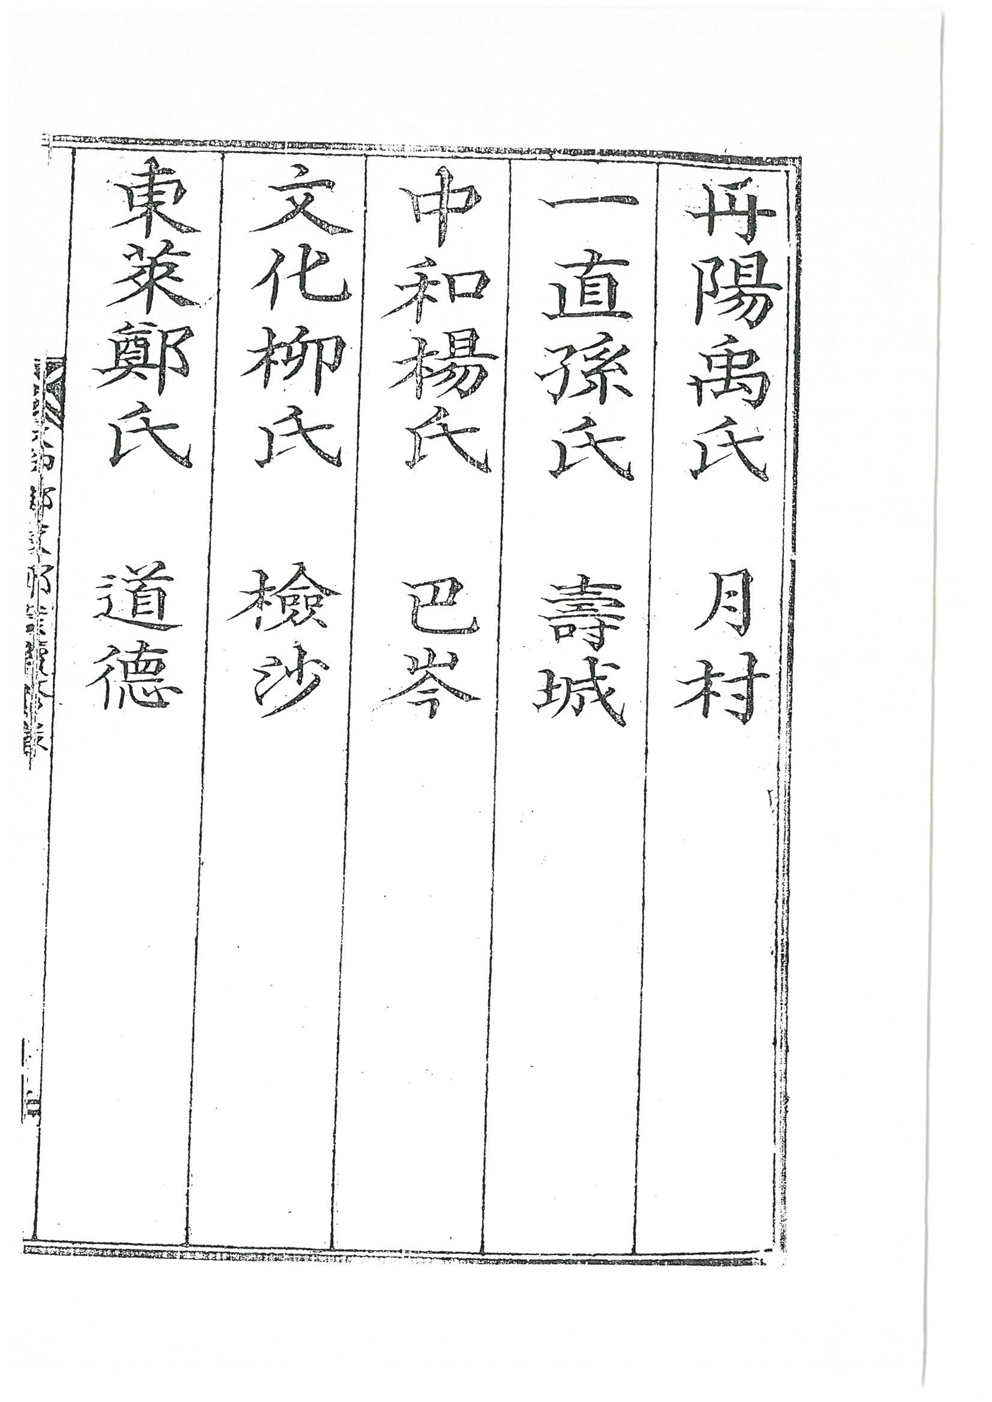 丹陽禹氏 月村
一直孫氏 壽城
中和楊氏 巴岑
文化柳氏 檢沙
東萊鄭氏 道德